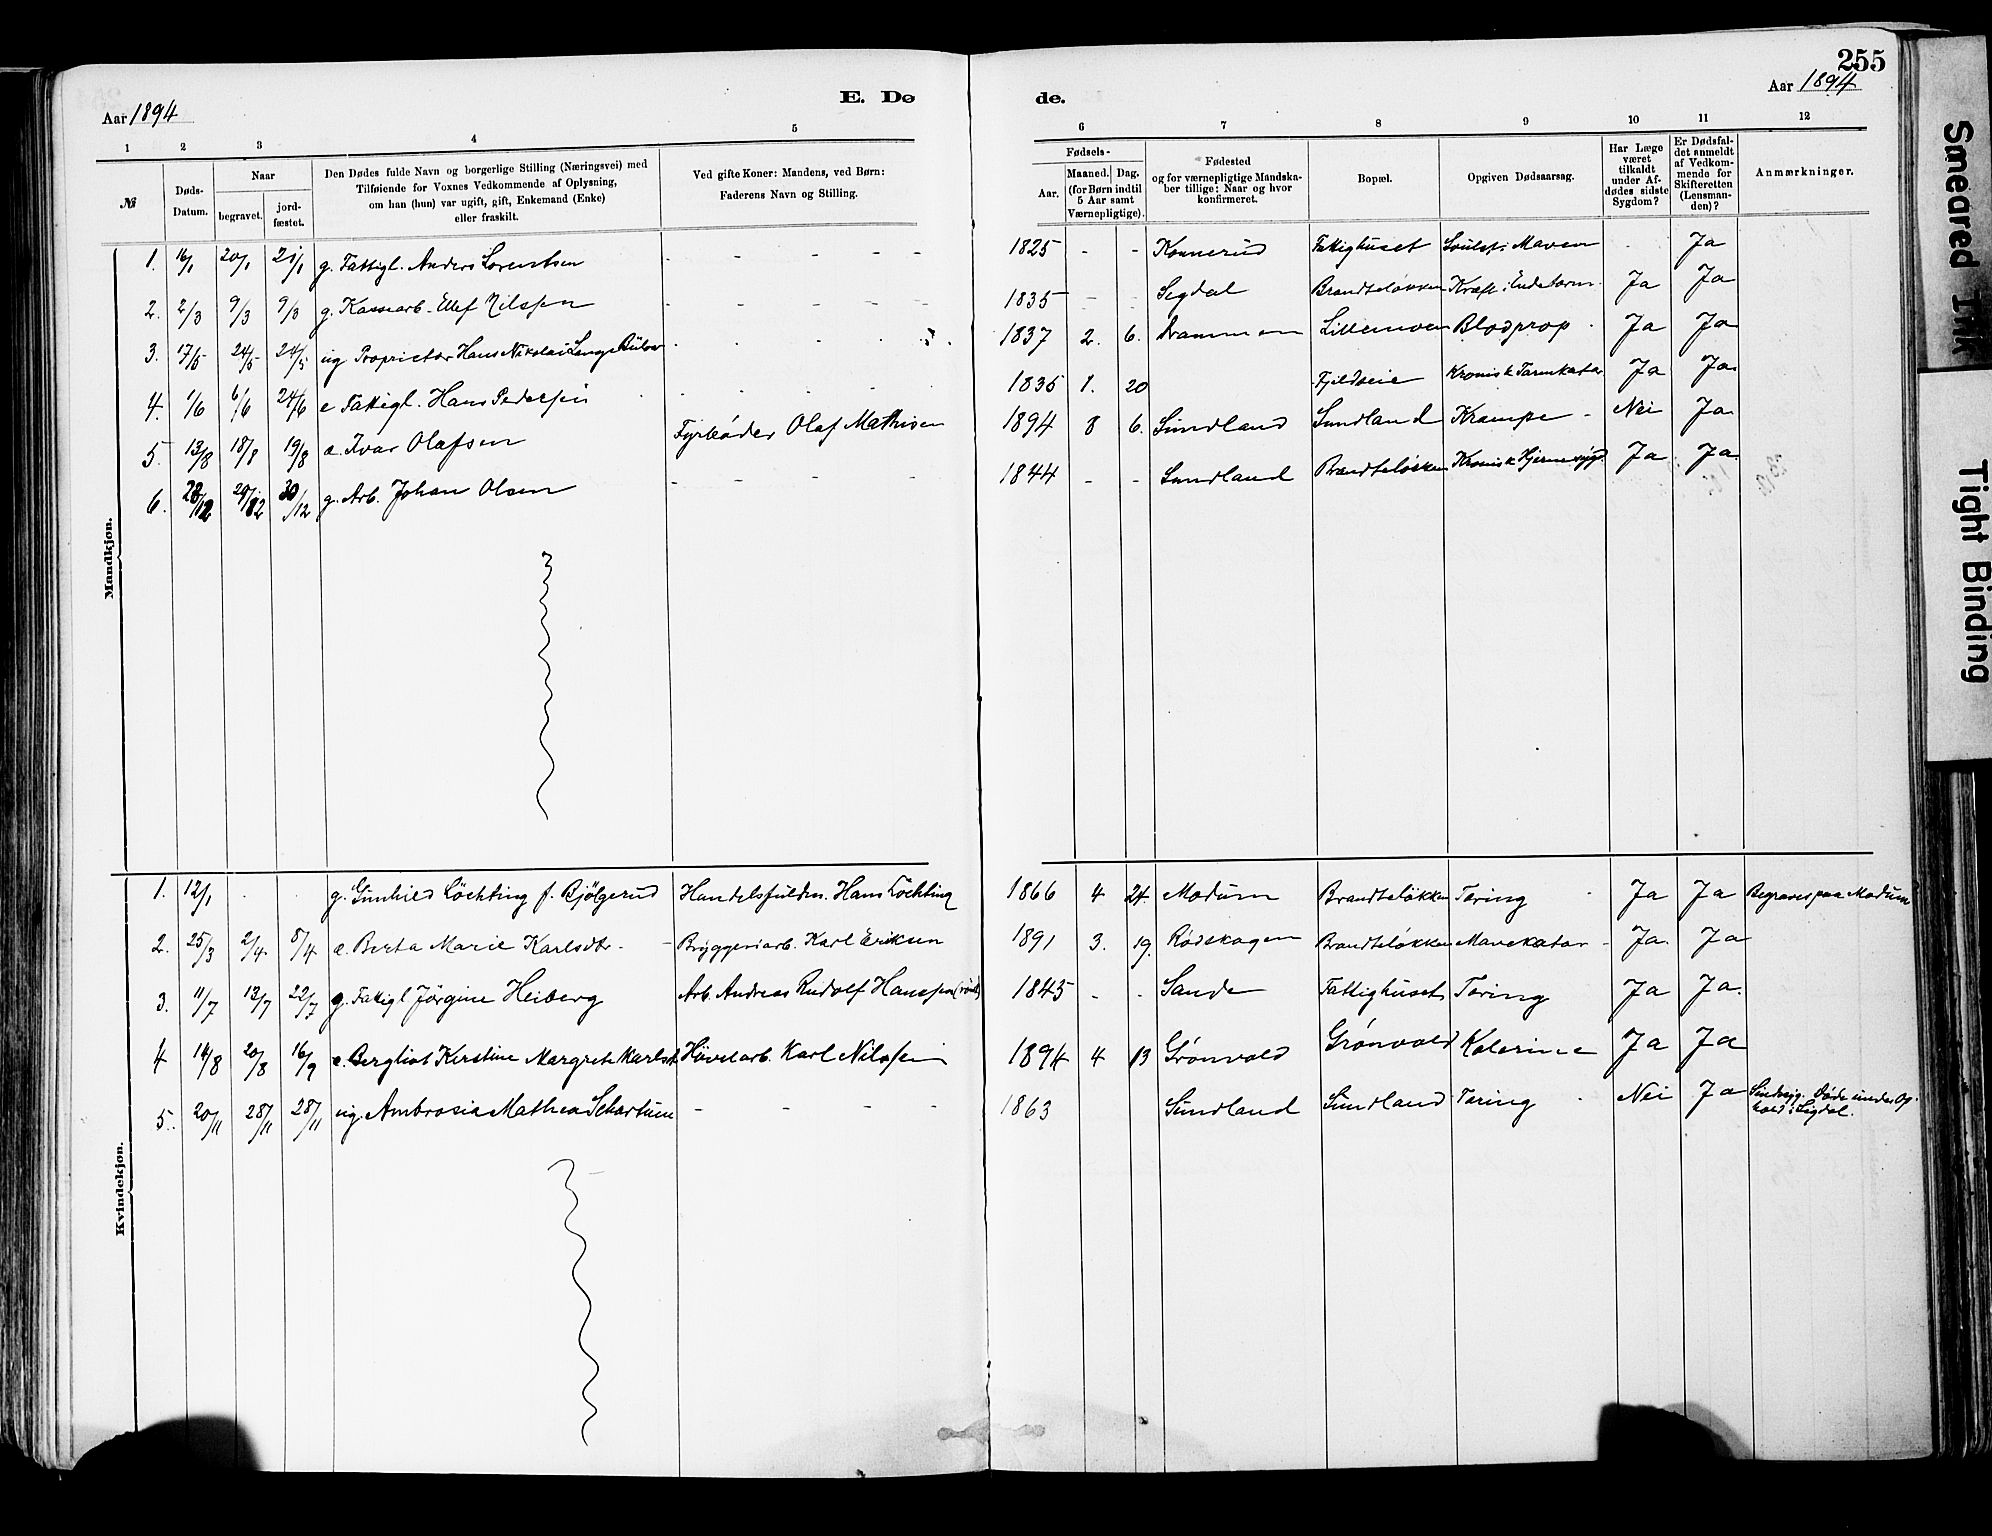 255
Aar 1894
E. Dø
de.
Aar 1894
1 2 3 4 5 6 7 8 9 10 11 12
№
Døds-Datum.
Naar
begravet.
jord-fæstet.
Den Dødes fulde Navn og borgerlige Stilling (Næringsvei) med
Tilføiende for Voxnes Vedkommende af Oplysning,
om han (hun) var ugift, gift, Enkemand (Enke)
eller fraskilt.
Ved gifte Koner: Mandens, ved Børn:
Faderens Navn og Stilling.
Fødsels-
Aar.
Maaned. Dag.
(for Børn indtil
5 Aar samt
Værnepligtige).
Fødested
og for værnepligtige Mandska-
ber tillige: Naar og hvor
konfirmeret.
Bopæl.
Opgiven Dødsaarsag.
Har Læge
været
tilkaldt
under Af-
dødes sidste
Sygdom?
Er Dødsfal-
det anmeldt
af Vedkom-
mende for
Skifteretten
(Lensman-
den)?
Anmærkninger.
Mandkjøn.
1. 16/1 20/1 21/1 g. Fattigl. Anders Lorentsen - - - - 1825 - - Konnerud Fattighuset i Maven - Ja
2. 2/3 9/3 9/3 g. Kassearb. Ellef Nilssen - - - - 1835 - - Segdal Brandteløkken Kræft i Endetarm. Ja Ja
3. 17/5 24/5 24/5 ug. Proprietær Hans Nikolai Lange - - - 1837 2. 6. Drammen Lillemoen Blodprop. Ja Ja
4. 1/6 6/6 24/6 e Fattigl. Hans Pedersen - - - - 1835 1. 20 Fjeldseie Kronisk Tarmkatar Ja Ja
5. 13/8 18/8 19/8 e. Ivar Olafsen Fyrbøder Olaf Mathisen 1894 8 6. Sundland Sundland Krampe - Nei Ja.
6. 28/12 29/12 30/12 g. Arb. Johan Olsen - - - - 1844 - - Sundland Brandteløkken Kronisk Hjernesygd. Ja Ja
Kvindekjøn.
1. 12/1 - - g. Gunhild Løchting f. Bjølgerud Handelsfuldm. Hans Løchting 1866 4 24. Modum Brandteløkken Tæring - Ja Ja Begraves paa Modum
2. 25/3 2/4 8/4 e. Berta Marie Karlsdtr. - Bryggeriarb. Karl Eriksen 1891 3. 19. Rødskogen Brandteløkken Mavekatar - Ja. Ja
3. 11/7 13/7 22/7 g. Fattigl Jørgine Heiberg Arb. Andreas Rudolf Hanssen 1845 - - Sande Fattighuset Tæring Ja Ja.
4 14/8 20/8 16/9 e. Bergliot Kirstine Margrete Karlsdt. Høvelarb. Karl Nilssen 1894 4 13 Grønvold Grønvold Kolerine Ja Ja
5. 20/11 28/11 28/11 ug. Ambrosia Mathea Schartum - - - - 1863 Sundland Sundland Tæring - Nei Ja Sindsyg. Døde under Op-
hold i Sigdal.
Smeared Ink
Tight Binding